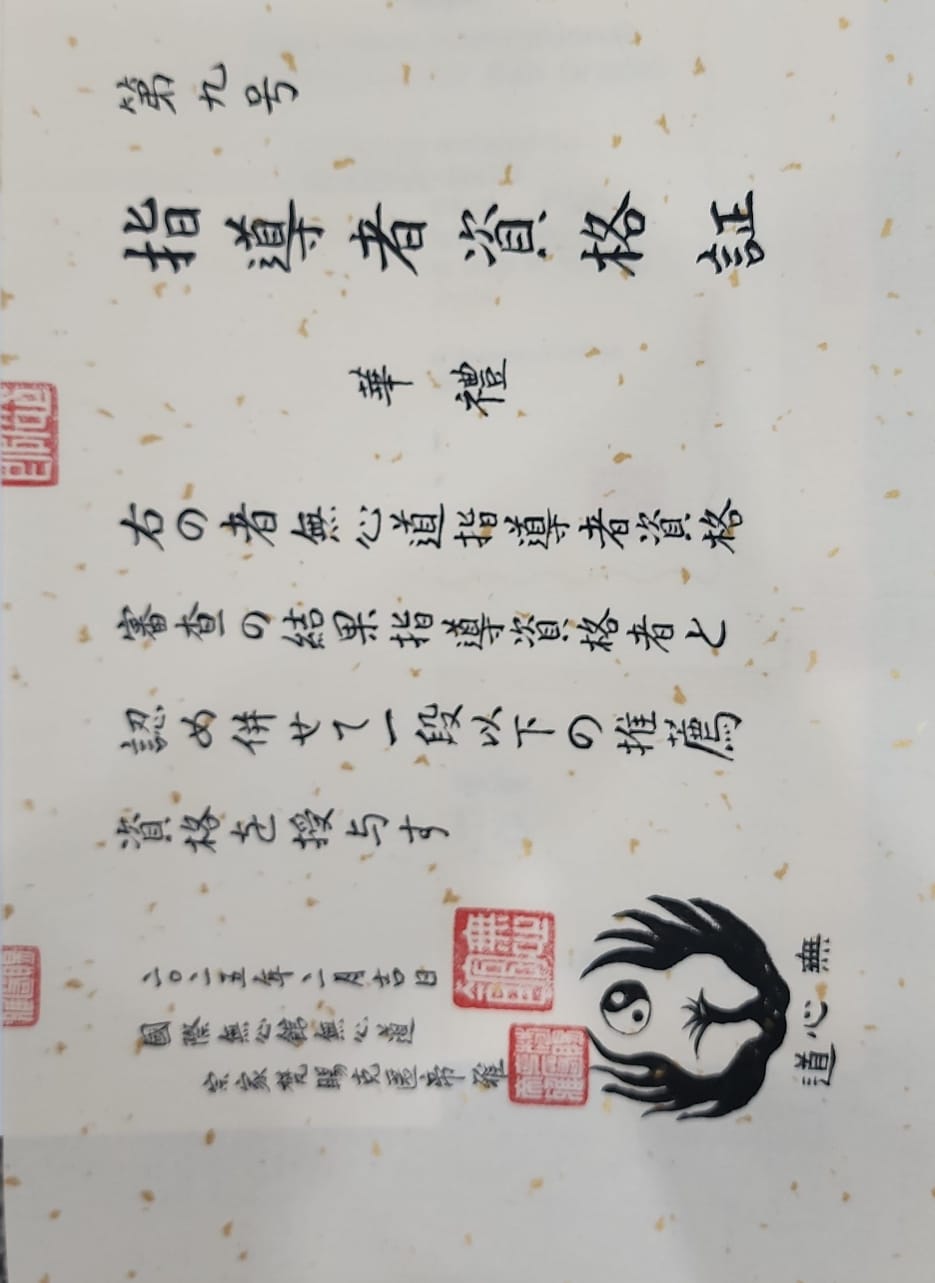 第九号
指導者資格証
華禮
右の者無心道指導者資格
審査の結果指導資格者と
認め併せて一段以下の推薦
資格を授与す
二〇二五年二月吉日
國際無心館無心道
宗家梵賜克
無心道